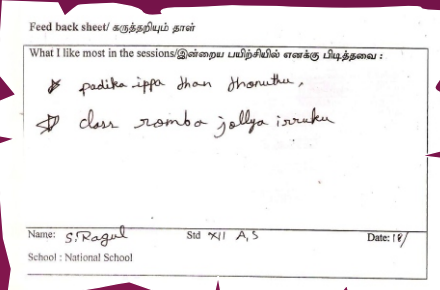 Feed back sheet/ கருத்தறியும் தாள்
What I like most in the sessions/இன்றைய பயிற்சியில் எனக்கு பிடித்தவை :
padika ippa dhan dhonuthu,
class romba jollya irruku
Name: S. Ragul Std XII A, S Date: 18/
School : National School